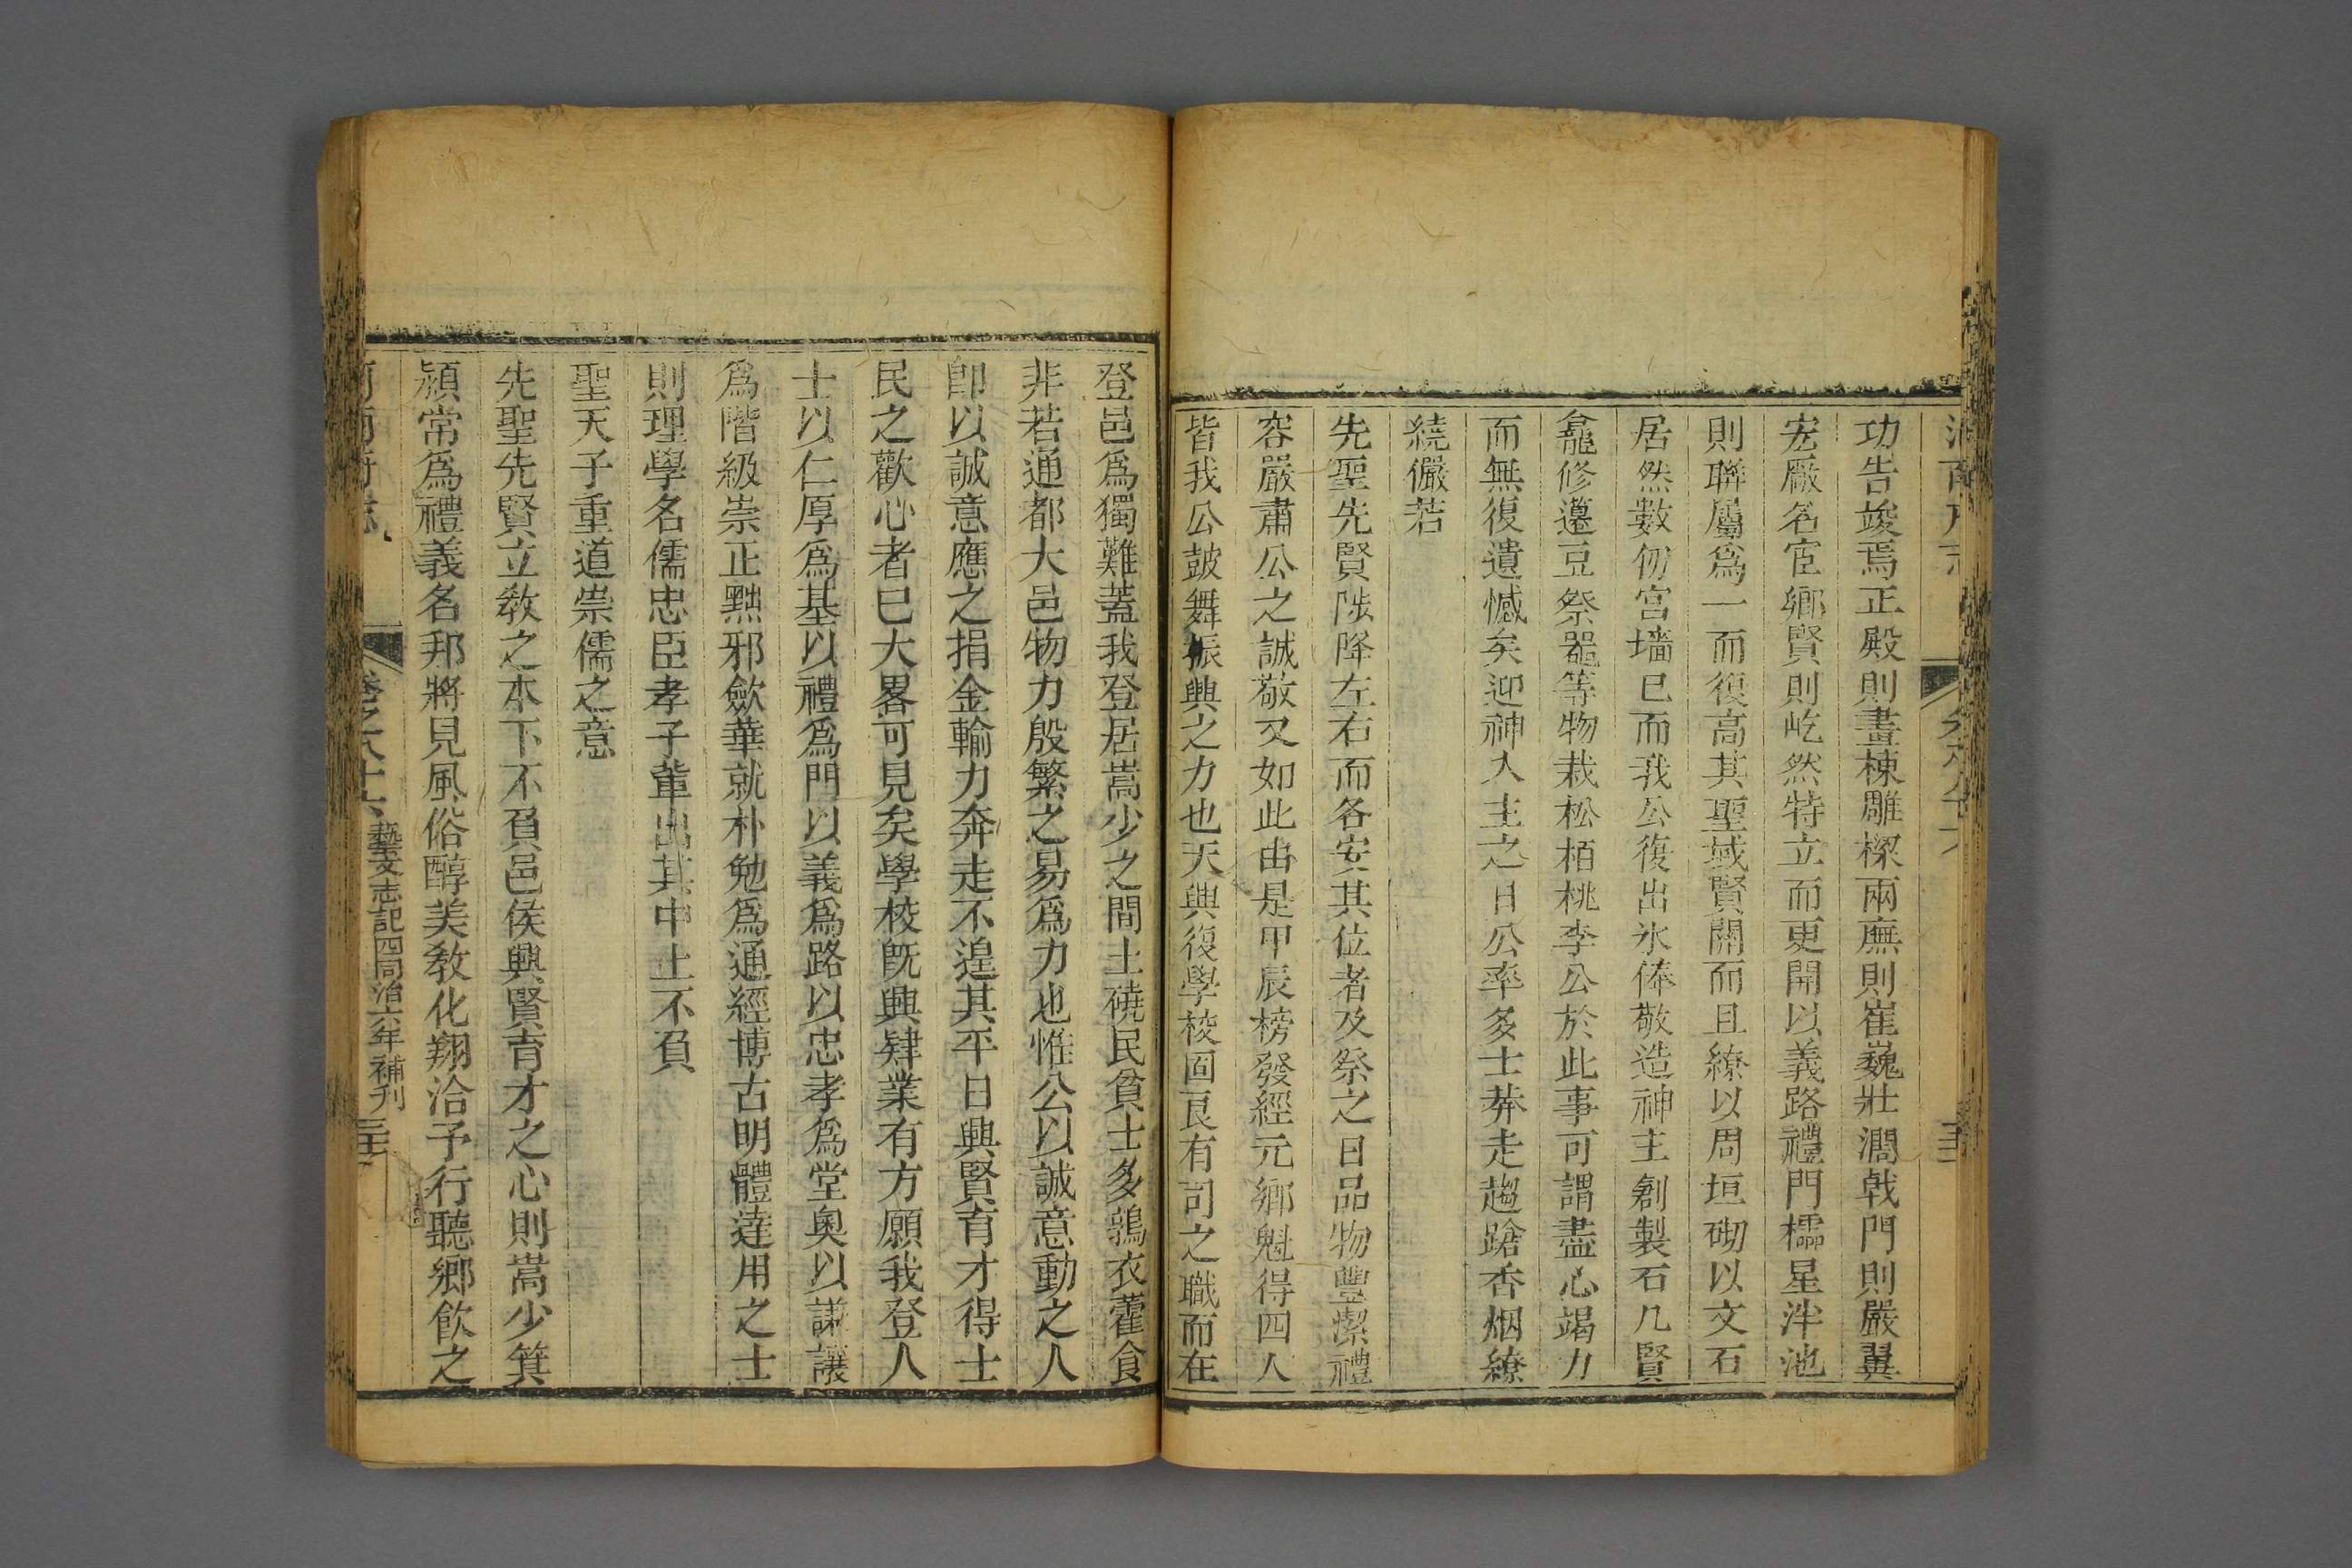 功告竣焉正殿則畫棟雕樑兩廡則崔巍壯濶戟門則嚴翼
宏厰名宦鄉賢則屹然特立而更開以義路禮門櫺星泮池
則聯屬爲一而復高其聖域賢關而且繚以周垣砌以文石
居然數仞宫墻巳而我公復出氷俸敬造神主創製石几賢
龕修籩豆祭器等物栽松栢桃李公於此事可謂盡心竭力
而無復遺憾矣迎神入主之日公率多士莾走趨蹌香烟繚
繞儼若
先聖先賢陟降左右而各安其位者及祭之日品物豐潔禮
容嚴肅公之誠敬又如此由是甲辰榜發經元鄉魁得四人
皆我公鼓舞振興之力也夫興復學校固良有司之職而在
登邑爲獨難蓋我登居嵩少之間土磽民貧士多鶉衣藿食
非若通都大邑物力殷繁之易爲力也惟公以誠意動之人
卽以誠意應之捐金輸力奔走不遑其平日興賢育才得士
民之歡心者巳大畧可見矣學校旣興肄業有方願我登人
士以仁厚爲基以禮爲門以義爲路以忠孝爲堂奥以謙讓
爲階級崇正黜邪歛華就朴勉爲通經博古明體達用之士
則理學名儒忠臣孝子輩出其中上不負
聖天子重道崇儒之意
先聖先賢立敎之本下不負邑侯興賢育才之心則嵩少箕
潁常爲禮義名邦將見風俗醇美敎化翔洽予行聽鄉飮之
河南府志 卷之八十六 藝文志記四同治六年補刋